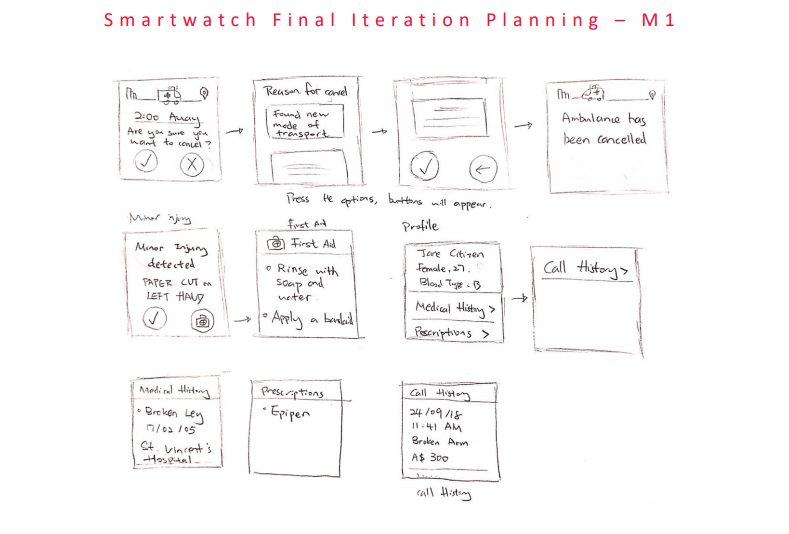 Smartwatch Final Iteration Planning – M1
2:00 Away
Are you sure you
want to cancel?
Reason for cancel
Found new
mode of
transport
Ambulance has
been cancelled
Press the options, buttons will appear.
Minor injury
Minor Injury
detected
PAPER CUT on
LEFT HAND
First Aid
First Aid
Rinse with
soap and
water
Apply a bandaid
Profile
Jane Citizen
Female, 27.
Blood Type: B
Medical History >
Prescriptions >
Call History >
Medical History
Broken Leg
17/02/05
St. Vincent's
Hospital
Prescriptions
Epipen
Call History
24/09/18
11:41 AM
Broken Arm
A$ 300
call History